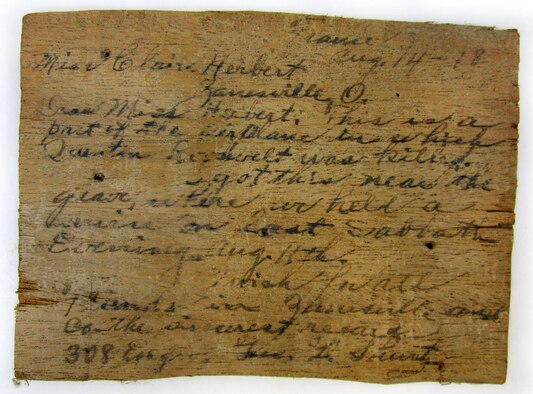 France
Aug. 14-18
Miss Claire Herbert
Zanesville, O.
Dear Miss Herbert. This is a
part of the aeroplane in which
Quentin Roosevelt was killed.
I got this near the
grave, where we held a
service on last Sabbath
Evening, Aug. 11th.
I wish for all
friends in Zanesville and
Co. the sincerest regards
308 Eng.